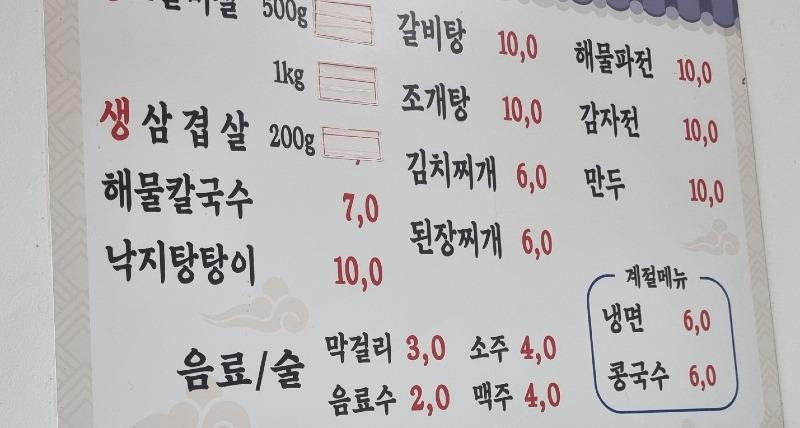 500g
1kg
생삼겹살 200g
해물칼국수 7,0
낙지탕탕이 10,0
갈비탕 10,0
조개탕 10,0
김치찌개 6,0
된장찌개 6,0
해물파전 10,0
감자전 10,0
만두 10,0
계절메뉴
냉면 6,0
콩국수 6,0
음료/술
막걸리 3,0 소주 4,0
음료수 2,0 맥주 4,0